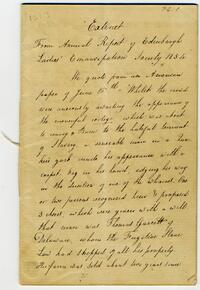 Extract
From Annual Report of Edinburgh
Ladies' Emancipation Society 1854
We quote from an American
paper of June 15th "Whilst the crowd
were anxiously awaiting the appearance of
the mournful cortège which was about
to carry a Burns to the hateful torment
of Slavery a venerable man in a
made his appearance with a
carpet bag in his hand, edging his way
in the direction of one of the Wharves. One
or two persons recognized him & proposed
3 cheers, which were given with a will
that man was Thomas Garrett of
Delaware, whom the Fugitive Slave
Law had stripped of all his property.
His farm was sold about two years since